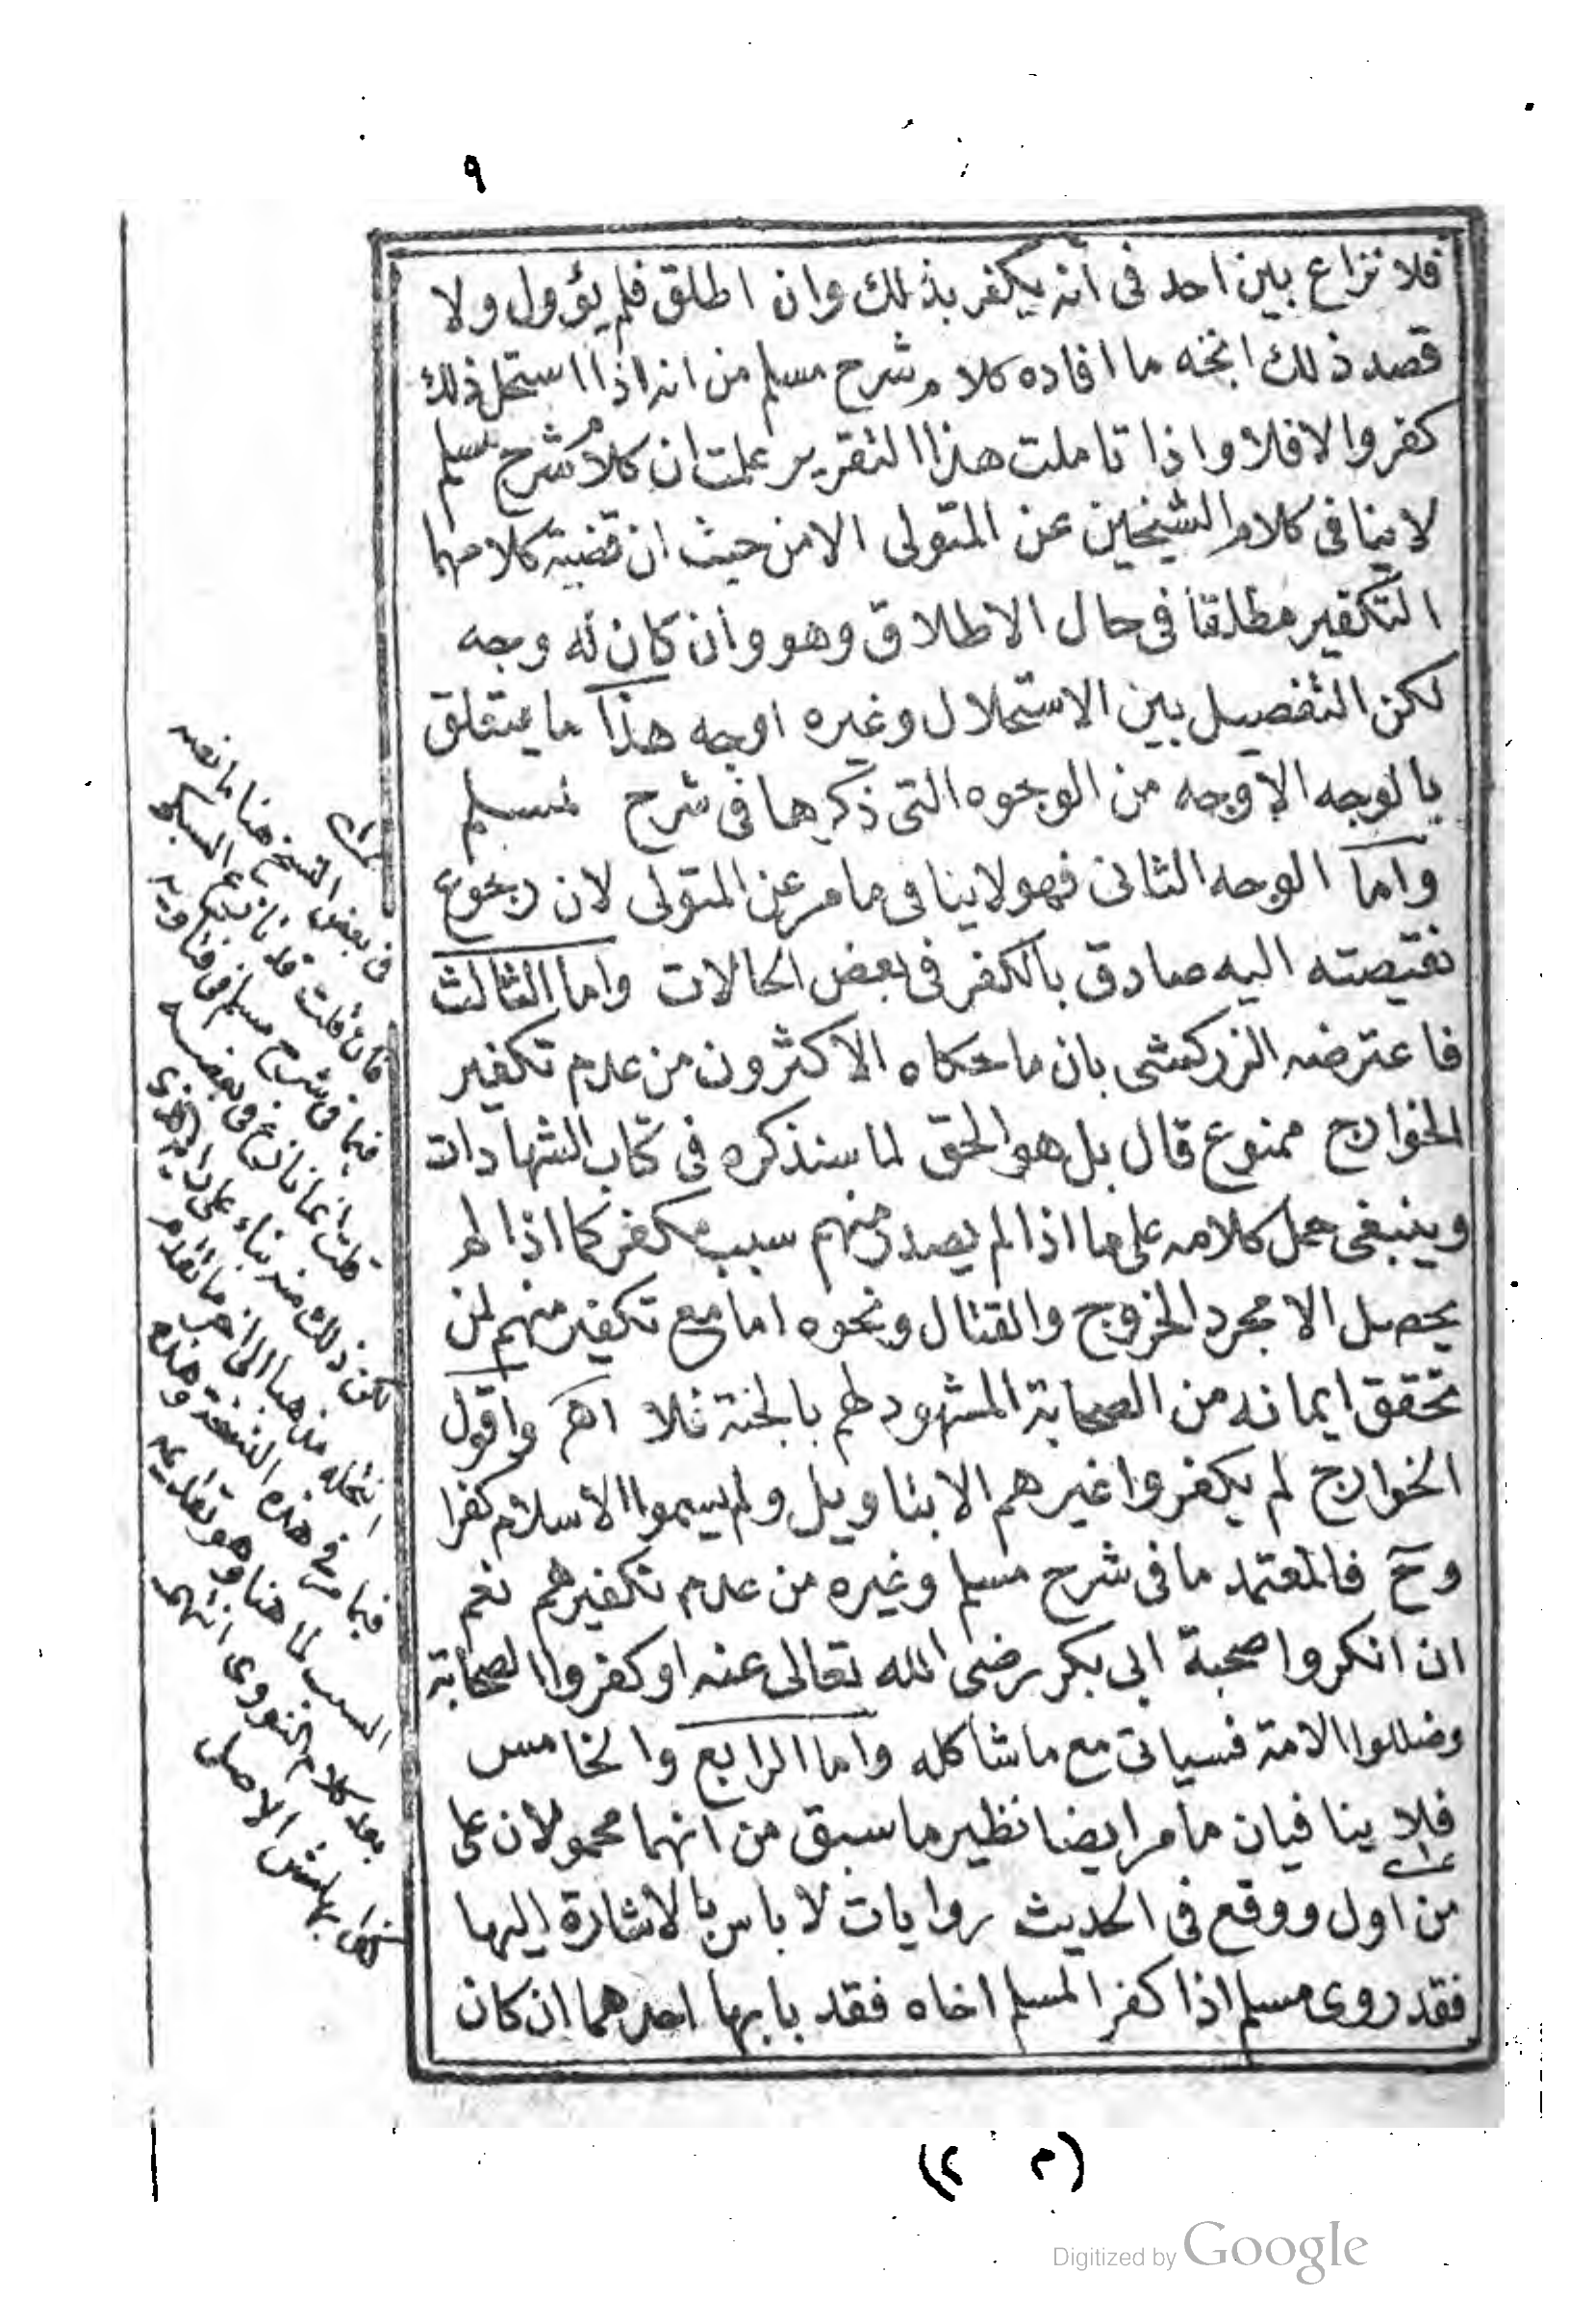 ٩
فلا نزاع بين احد في انه يكفر بذلك وان اطلق فلم يؤول ولا
قصد ذلك اتجه ما افاده كلام شرح مسلم من انه اذا استحل ذلك
كفر والا فلا واذا تاملت هذا التقرير علمت ان كلام شرح مسلم
لا ينافى كلام الشيخين عن المتولى الا من حيث ان قضية كلامهما
التكفير مطلقا فى حال الاطلاق وهو وان كان له وجه
لكن التفصيل بين الاستحلال وغيره اوجه هذا ما يتعلق
بالوجه الاوجه من الوجوه التى ذكرها فى شرح مسلم
واما الوجه الثانى فهو لا ينافى ما مر عن المتولى لان رجوع
نقيصته اليه صادق بالكفر فى بعض الحالات واما الثالث
فاعترضه الزركشى بان ما حكاه الاكثرون من عدم تكفير
الخوارج ممنوع قال بل هو الحق لما سنذكره فى كتاب الشهادات
وينبغى حمل كلامه على ما اذا لم يصدر منهم سبب مكفر كما اذا لم
يحصل الا مجرد الخروج والقتال ونحوه اما مع تكفير منهم لمن
تحقق ايمانه من الصحابة المشهود لهم بالجنة فلا اهـ واقول
الخوارج لم يكفروا غيرهم الا بتاويل ولم يسموا الاسلام كفرا
وح فالمعتمد ما فى شرح مسلم وغيره من عدم تكفيرهم نعم
ان انكروا صحبة ابى بكر رضى الله تعالى عنه او كفروا الصحابة
وضللوا الامة فسياتى مع ما شاكله واما الرابع والخامس
فلا ينافيان ما مر ايضا نظير ما سبق من انهما محمولان على
من اول ووقع فى الحديث روايات لا باس بالاشارة اليها
فقد روى مسلم اذا كفر المسلم اخاه فقد باء بها احدهما ان كان
فى بعض النسخ هنا ما نصه
فان قلت قد نازع السبكى
فيما فى شرح مسلم فى فتاويه
قلت انما نازع فى بعضه
لكن ذلك منه بناء على راى
مذهبا الى اخر ما تقدم
فيما مر فى هذه النسخة وهذه
لما هنا وهو تقديمه
بعد كلام النووى انتهى
كذا بهامش الاصل
(م ٢)
Digitized by Google